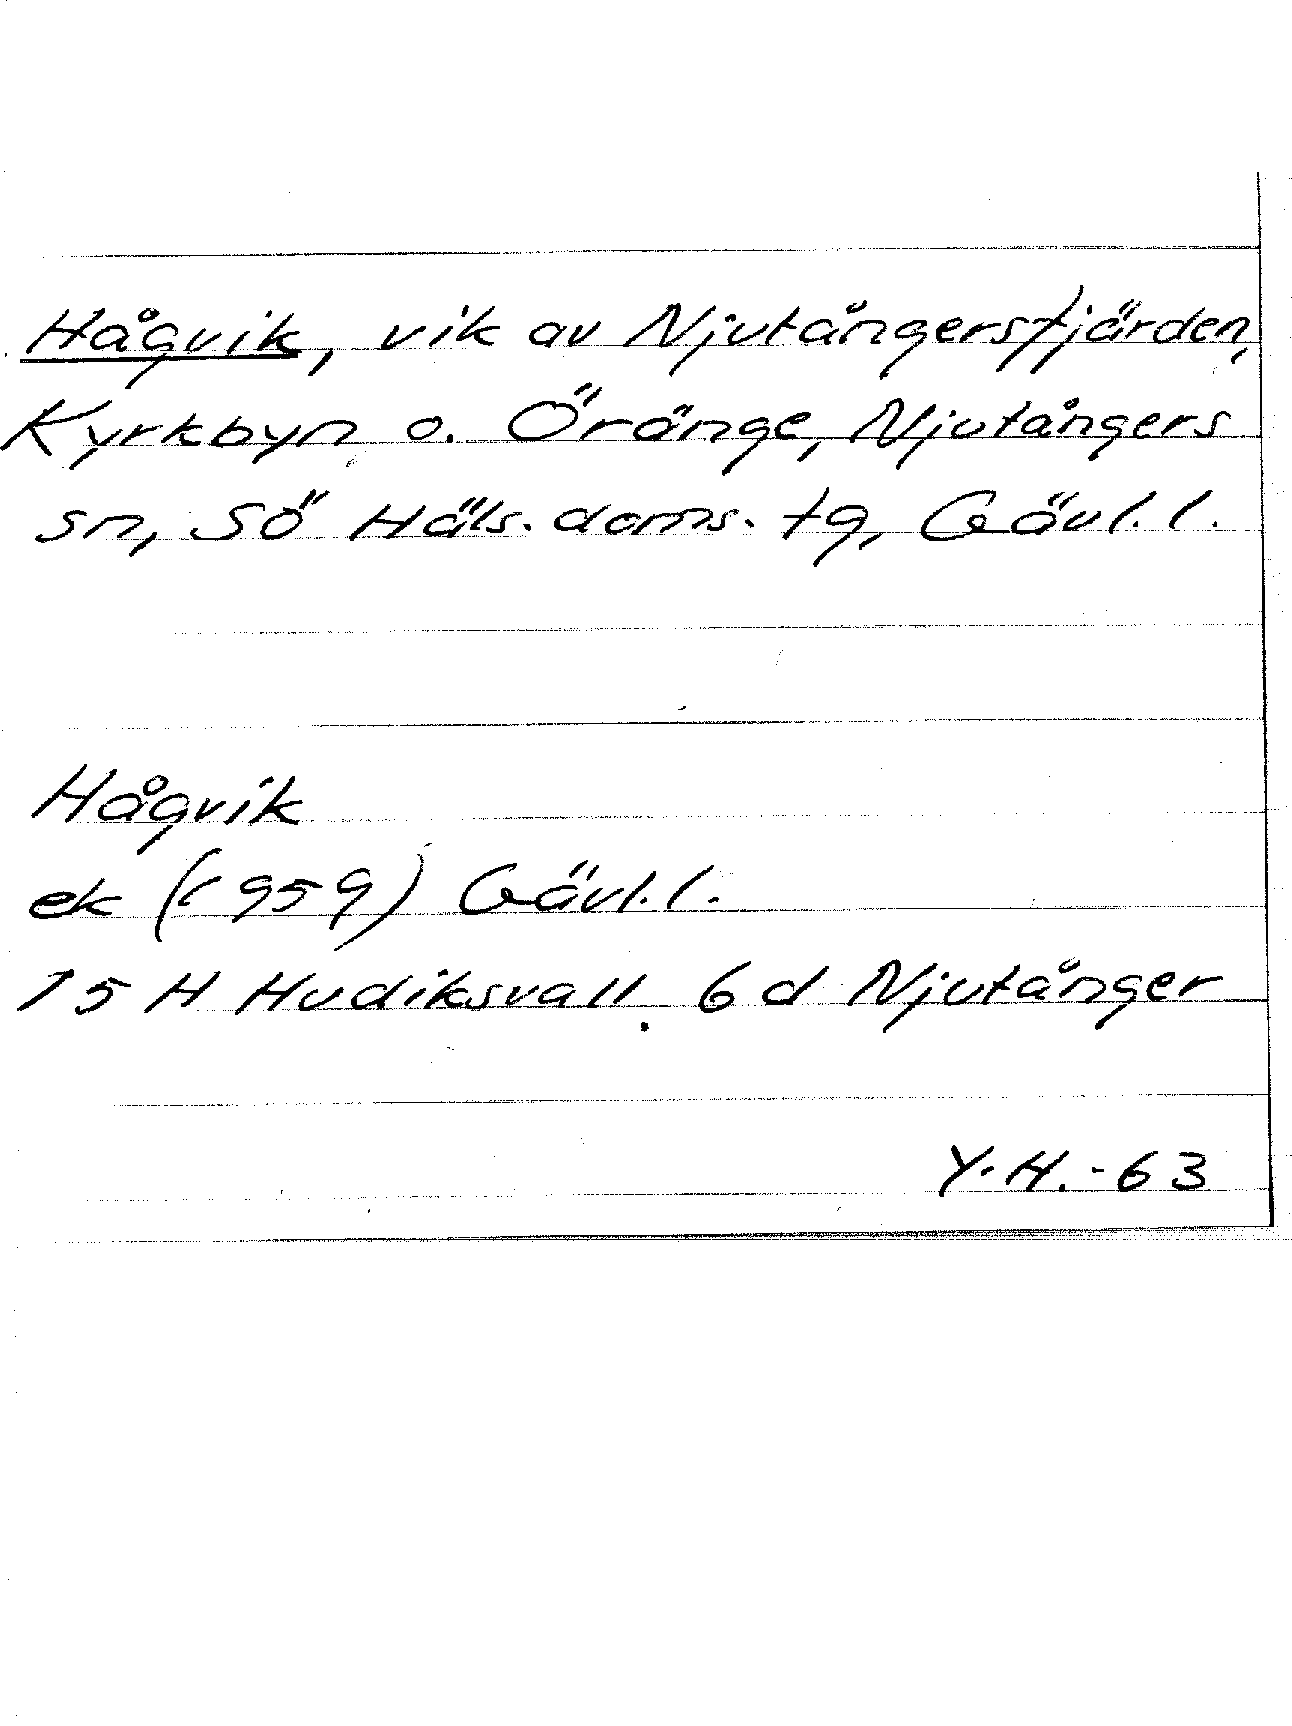 Hågvik, vik av Njutångersfjärden,
Kyrkbyn o. Öränge, Njutångers
sn, Sö Häls. doms. tg, Gävl. l.
Hågvik
ek (1959) Gävl. l.
15 H Hudiksvall. 6 d Njutånger
Y.H. -63